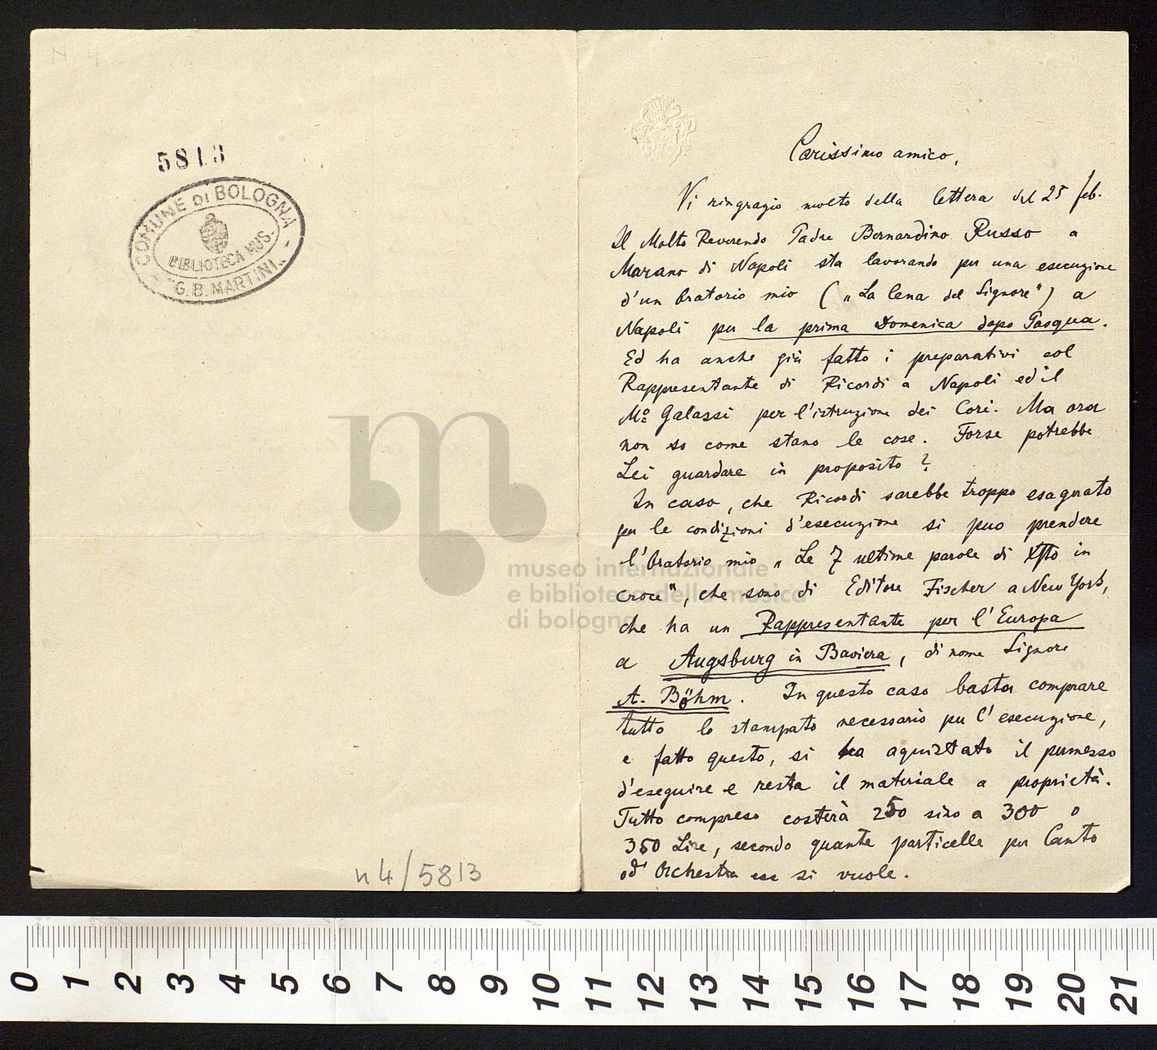 5813
COMUNE DI BOLOGNA
BIBLIOTECA MUS.
"G. B. MARTINI"
n4/5813
Carissimo amico,
Vi ringrazio molto della lettera del 25 feb.
Il Molto Reverendo Padre Bernardino Russo a
Marano di Napoli sta lavorando per una esecuzione
d'un Oratorio mio („La Cena del Signore") a
Napoli per la prima Domenica dopo Pasqua.
Ed ha anche già fatto i preparativi col
Rappresentante di Ricordi a Napoli ed il
Mo: Galassi per l'istruzione dei Cori. Ma ora
non so come stano le cose. Forse potrebbe
Lei guardare in proposito?
In caso, che Ricordi sarebbe troppo esagerato
per le condizioni d'esecuzione si puo prendere
l'Oratorio mio „Le 7 ultime parole di Xsto in
croce", che sono di Editore Fischer a New York,
che ha un Rappresentante per l'Europa
a Augsburg in Baviera, di nome Signore
A. Böhm. In questo caso basta comprare
tutto lo stampato necessario per l'esecuzione,
e fatto questo, si ha aquistato il permesso
d'eseguire e resta il materiale a proprietà.
Tutto compreso costerà 250 sino a 300 o
350 Lire, secondo quante particelle per Canto
od Orchestra si vuole.
museo internazionale
e biblioteca della musica
di bologna
0 1 2 3 4 5 6 7 8 9 10 11 12 13 14 15 16 17 18 19 20 21